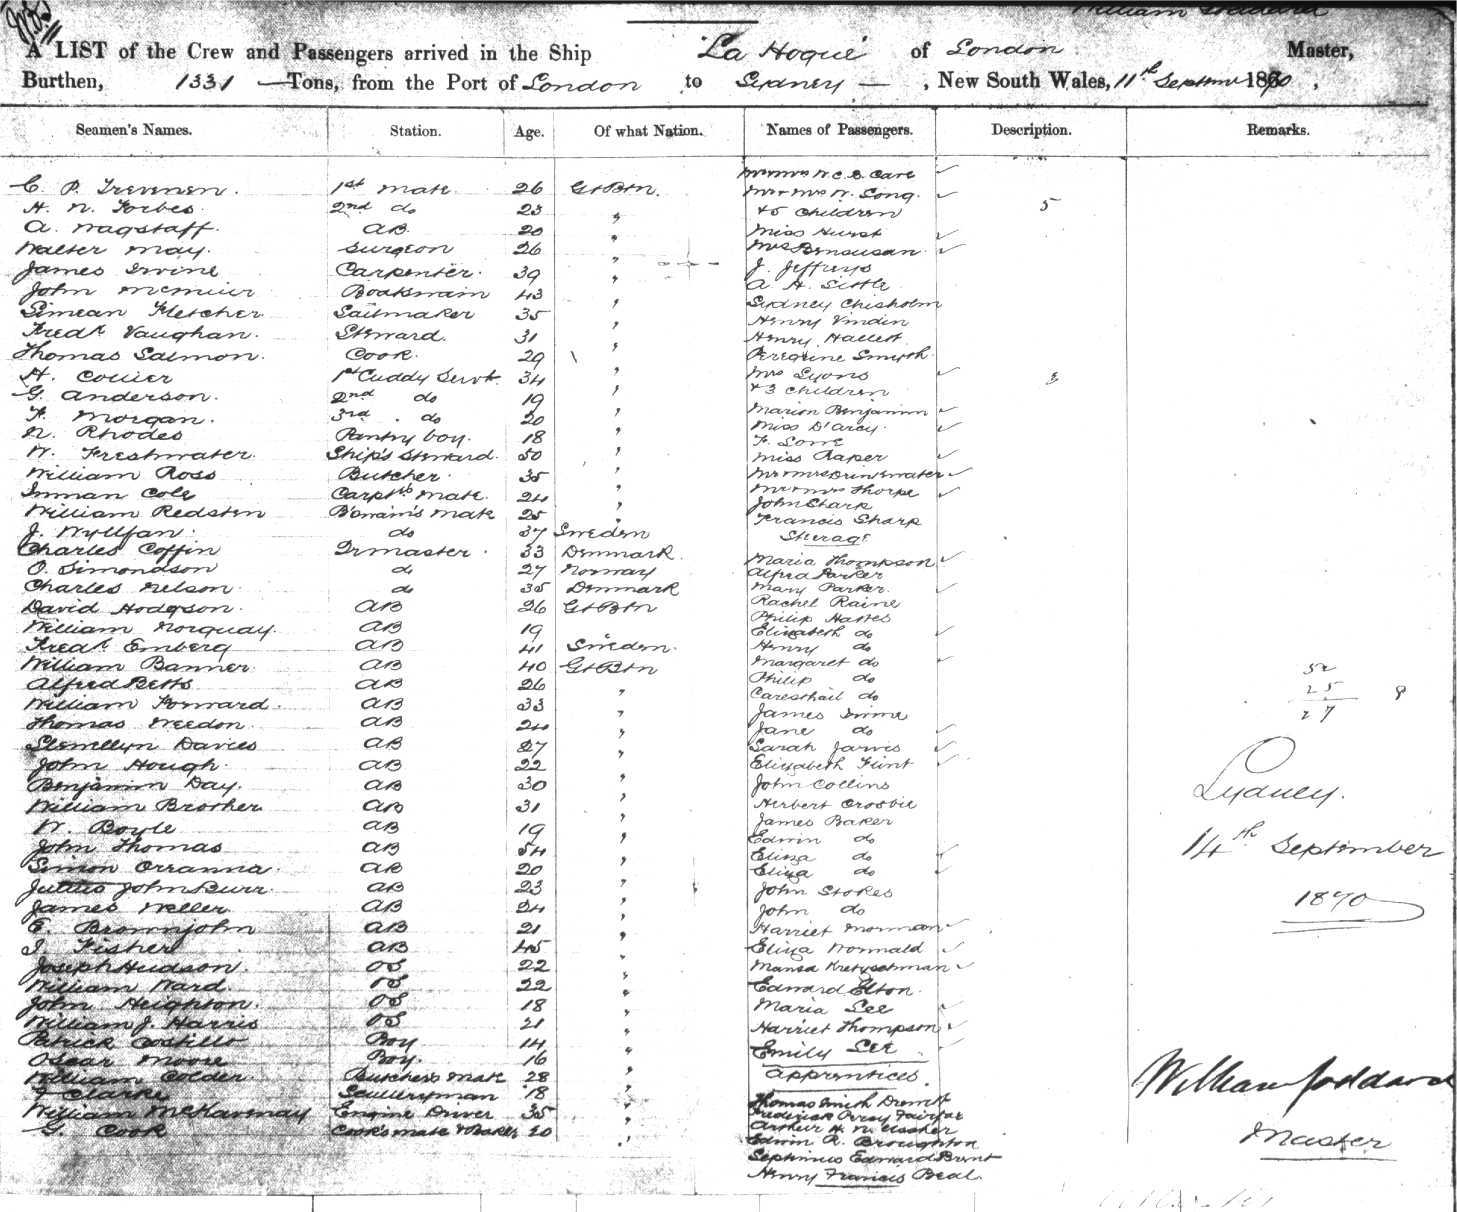 William Goddard
A LIST of the Crew and Passengers arrived in the Ship "La Hogue" of London Master,
Burthen, 1331 Tons, from the Port of London to Sydney, New South Wales, 11th September 1870,
Seamen's Names. Station. Age. Of what Nation. Names of Passengers. Description. Remarks.
C. P. Trevenen. 1st Mate. 26 Gt Btn.
H. N. Forbes. 2nd do 23 "
A. Wagstaff. AB. 20 "
Walter May. Surgeon 26 "
James Irvine Carpenter. 39 "
John Boatswain 43 "
Simean Fletcher Sailmaker 35 "
Fredk Vaughan. Steward. 31 "
Thomas Salmon. Cook. 29 "
H. Collier 1st Cuddy Servt. 34 "
G. Anderson. 2nd do 19 "
F. Morgan. 3rd do 20 "
N. Rhodes Pantry boy. 18 "
W. Freshwater. Ship's Steward. 50 "
William Ross Butcher. 35 "
Inman Cole Carptrs Mate. 24 "
William Redsten B'swain's Mate 25 "
J. do 37 Sweden
Charles Coffin Qrmaster. 33 Denmark.
O. Simondson do 27 Norway
Charles Nelson. do 35 Denmark
David Hodgson. AB 26 Gt Btn
William Norquay. AB 19 "
Fredk Emberg AB 41 Sweden.
William Banner. AB 40 Gt Btn
Alfred Betts AB 26 "
William Forward. AB 33 "
Thomas Weedon. AB 24 "
Llewellyn Davies AB 27 "
John Hough. AB 22 "
Benjamin Day. AB 30 "
William Brother AB 31 "
W. Boyle AB 19 "
John Thomas AB 54 "
Simon Orranna. AB 20 "
Julius John Burr. AB 23 "
James Weller. AB 24 "
E. Brownjohn AB 21 "
I. Fisher AB 45 "
Joseph Hudson. OS 22 "
William Ward. OS 22 "
John Heighton. OS 18 "
William J. Harris OS 21 "
Patrick Costillo Boy 14 "
Oscar Moore Boy. 16 "
William Colder. Butcher's Mate 28 "
Clarke Scullery man 18 "
William Engine Driver 35 "
G. Cook Cook's mate & Baker 20 "
Mr & Mrs W. C. B. Cave
Mr & Mrs W. Long.
& 5 Children 5
Miss Hurst
Mrs Bensusan
J. Jeffreys
A. H. Little.
Sydney Chisholm
Henry Vindin
Henry Hallett.
Peregrine Smyth.
Mrs Lyons
& 3 Children 3
Marion Benjamin
Miss D'Arcy.
F. Lowe
Miss Raper
Mr & Mrs Drinkwater
Mr & Mrs Thorpe
John Sharp
Francis Sharp
Steerage
Maria Thompson
Alfred Parker
Mary Parker.
Rachel Raine
Philip
Elizabeth do
Henry do
Margaret do
Philip do
do
James
Jane do
Sarah Jarvis
Elizabeth Flint
John Collins
Herbert Crosbie
James Baker
Edwin do
Eliza do
Eliza do
John Stokes
John do
Harriet Norman
Eliza Wormald
Kretzschman
Edward Elton.
Maria Lee
Harriet Thompson
Emily Lee
Apprentices.
Thomas Smith
Frederick Percy Fairfax
Arthur H. N. Ussher
Edwin R. Broughton
Septimus Edward Brent
Henry Francis Beal.
52
25
27 8
Sydney.
14th September
1870
William Goddard
Master